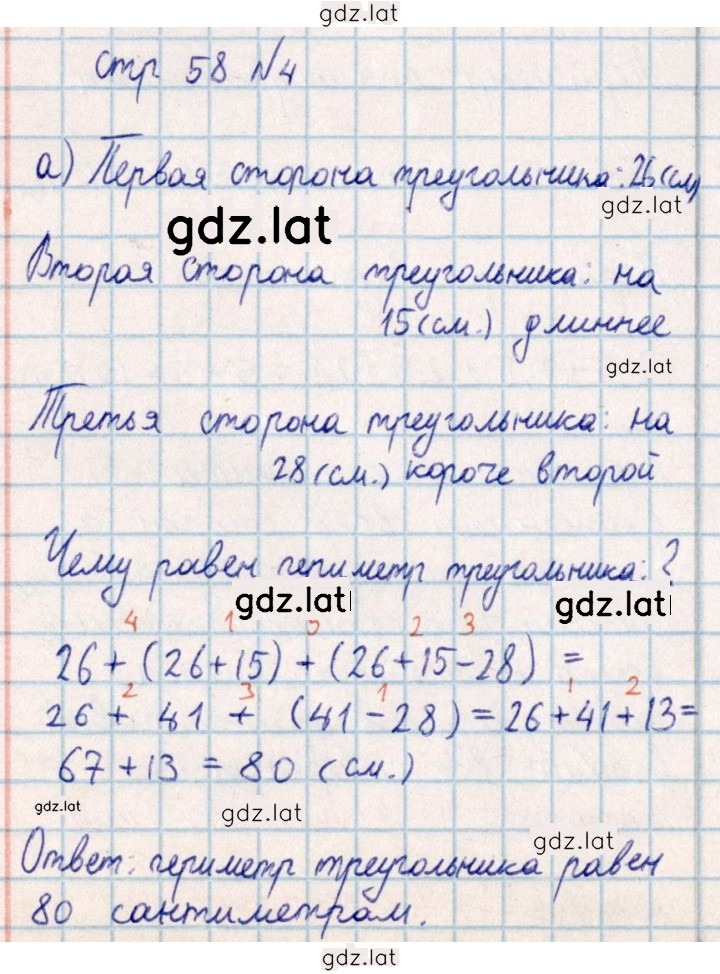 gdz.lat
стр 58 №4
а) Первая сторона треугольника: 26 (см)
gdz.lat
gdz.lat
Вторая сторона треугольника: на
15 (см.) длиннее
gdz.lat
Третья сторона треугольника: на
28 (см.) короче второй
Чему равен периметр треугольника: ?
gdz.lat
gdz.lat
4 1 5 2 3
26 + (26+15) + (26+15-28) =
2 3 1 1 2
26 + 41 + (41-28) = 26+41+13=
67+13 = 80 (см.)
gdz.lat
gdz.lat
gdz.lat
Ответ: периметр треугольника равен
80 сантиметрам.
gdz.lat